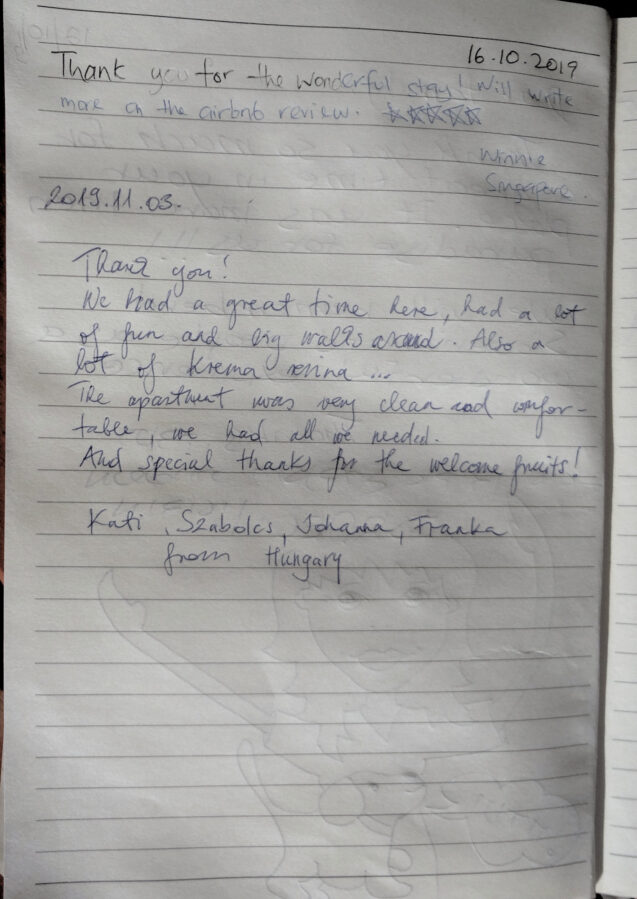 16.10.2019
Thank you for the wonderful stay! Will write
more on the airbnb review. ☆☆☆☆☆
Winnie
Singapore.
2019.11.03.
Thank you!
We had a great time here, had a lot
of fun and big walks around. Also a
lot of Krema ...
The apartment was very clean and comfor-
table, we had all we needed.
And special thanks for the welcome fruits!
Kati, Szabolcs, Johanna, Franka
from Hungary